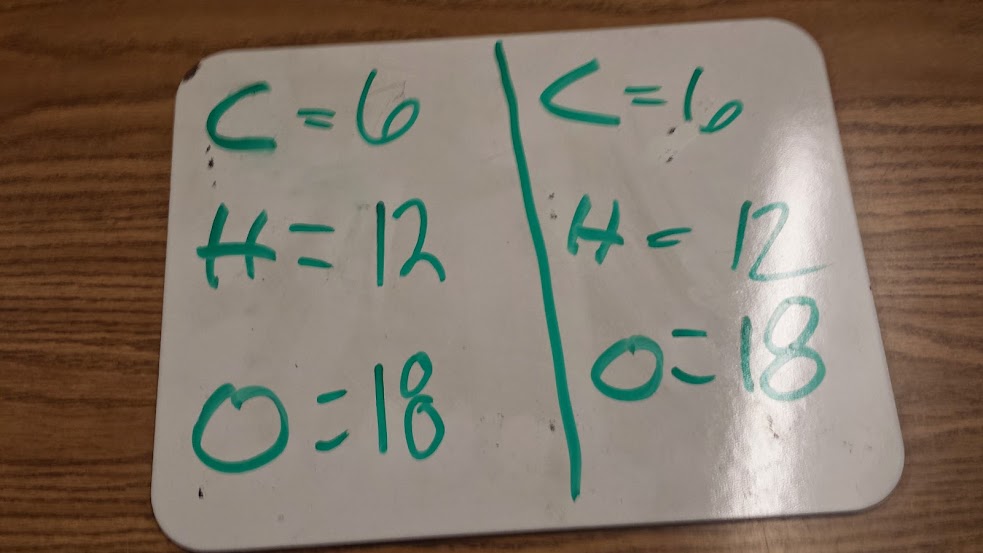 C = 6
H = 12
O = 18
C = 6
H = 12
O = 18